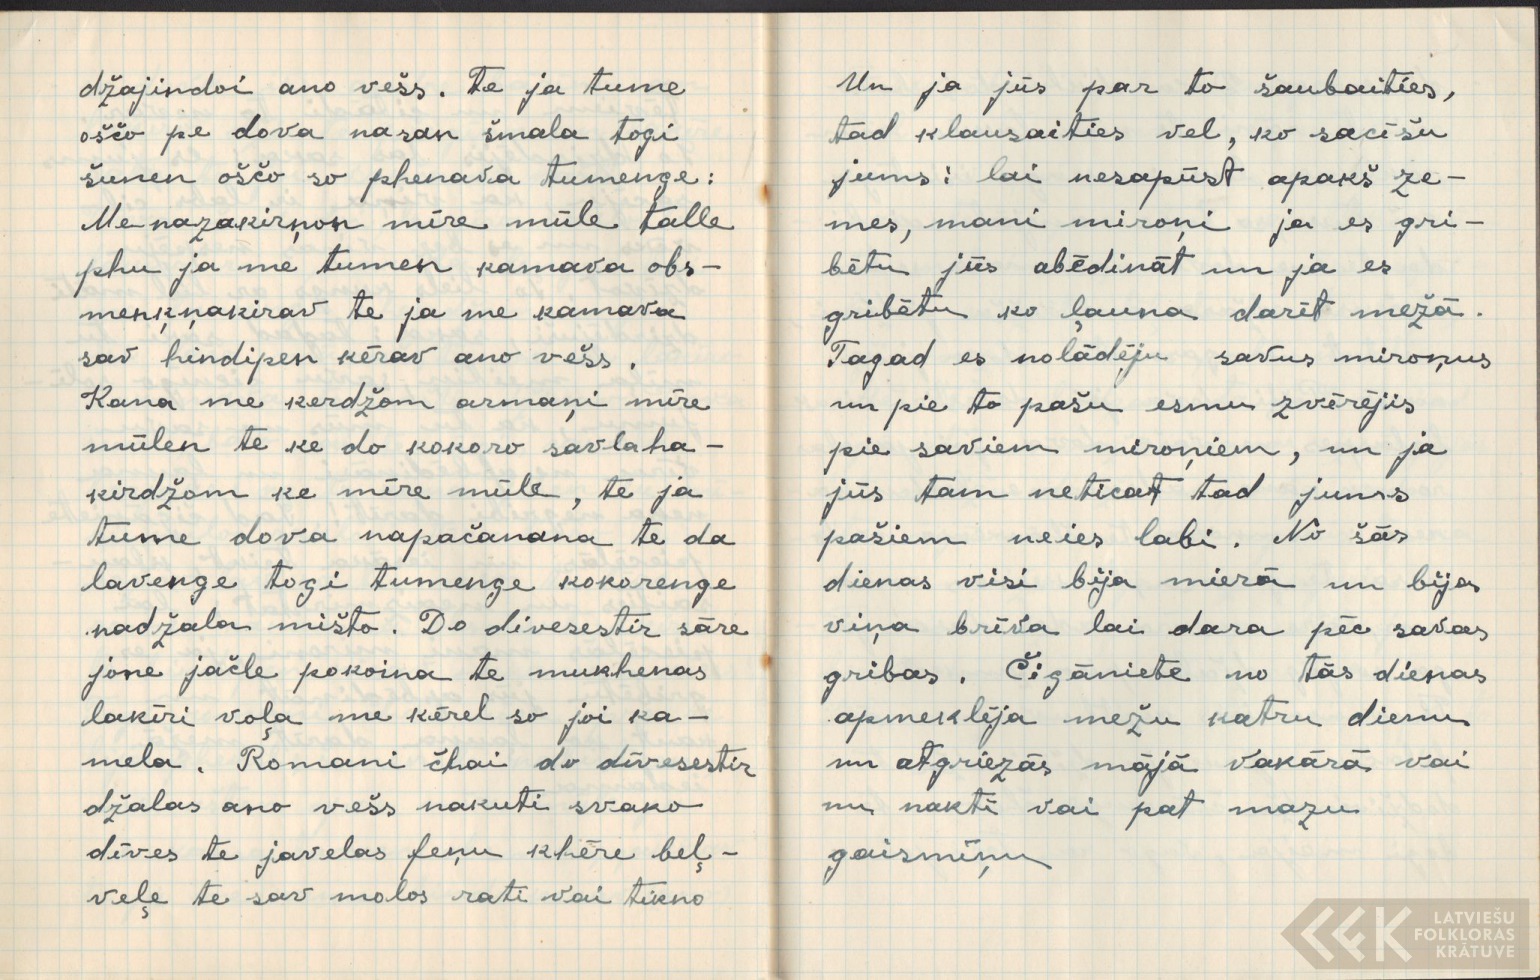 džajindoi ano vešs. Te ja tume
oščo pe dova nasan šmala togi
šunen oščo so phenava tumenge:
Me nazakirņon mīre mūle talle
phu ja me tumen kamava obs-
menķņakirav te ja me kamava
sav hindipen kērav ano vešs.
Kana me kerdžom armaņi mīre
mūlen te ke do kokoro savlaha-
kirdžom ke mīre mūle, te ja
tume dova napačanana te da
lavenge togi tumenge kokorenge
nadžala mišto. Do divesestir sāre
jone jačle pokoina te mukhenas
lakīri voļa me kērel so joi ka-
mela. Romani čhai do dīvesestir
džalas ano vešs nakuti svako
dīves te javelas feņu khēre beļ-
veļe te sav molos rati vai tikno
Un ja jūs par to šaubaities,
tad klausaities vel, ko sacīšu
jums: lai nesapūst apakš ze-
mes, mani mironi ja es gri-
bētu jūs abēdināt un ja es
gribētu ko ļauna darīt mežā.
Tagad es nolādēju savus mironus
un pie to pašu esmu zvērējis
pie saviem mironiem, un ja
jūs tam neticat tad jums
pašiem neies labi. No šās
dienas visi bija mierā un bijas
viņa brīva lai dara pēc savas
gribas. Čigāniete no tās dienas
apmeklēja mežu katru dienu
un atgriezās mājā vakārā vai
nu naktī vai pat mazu
gaismiņu
LATVIEŠU
FOLKLORAS
KRĀTUVE